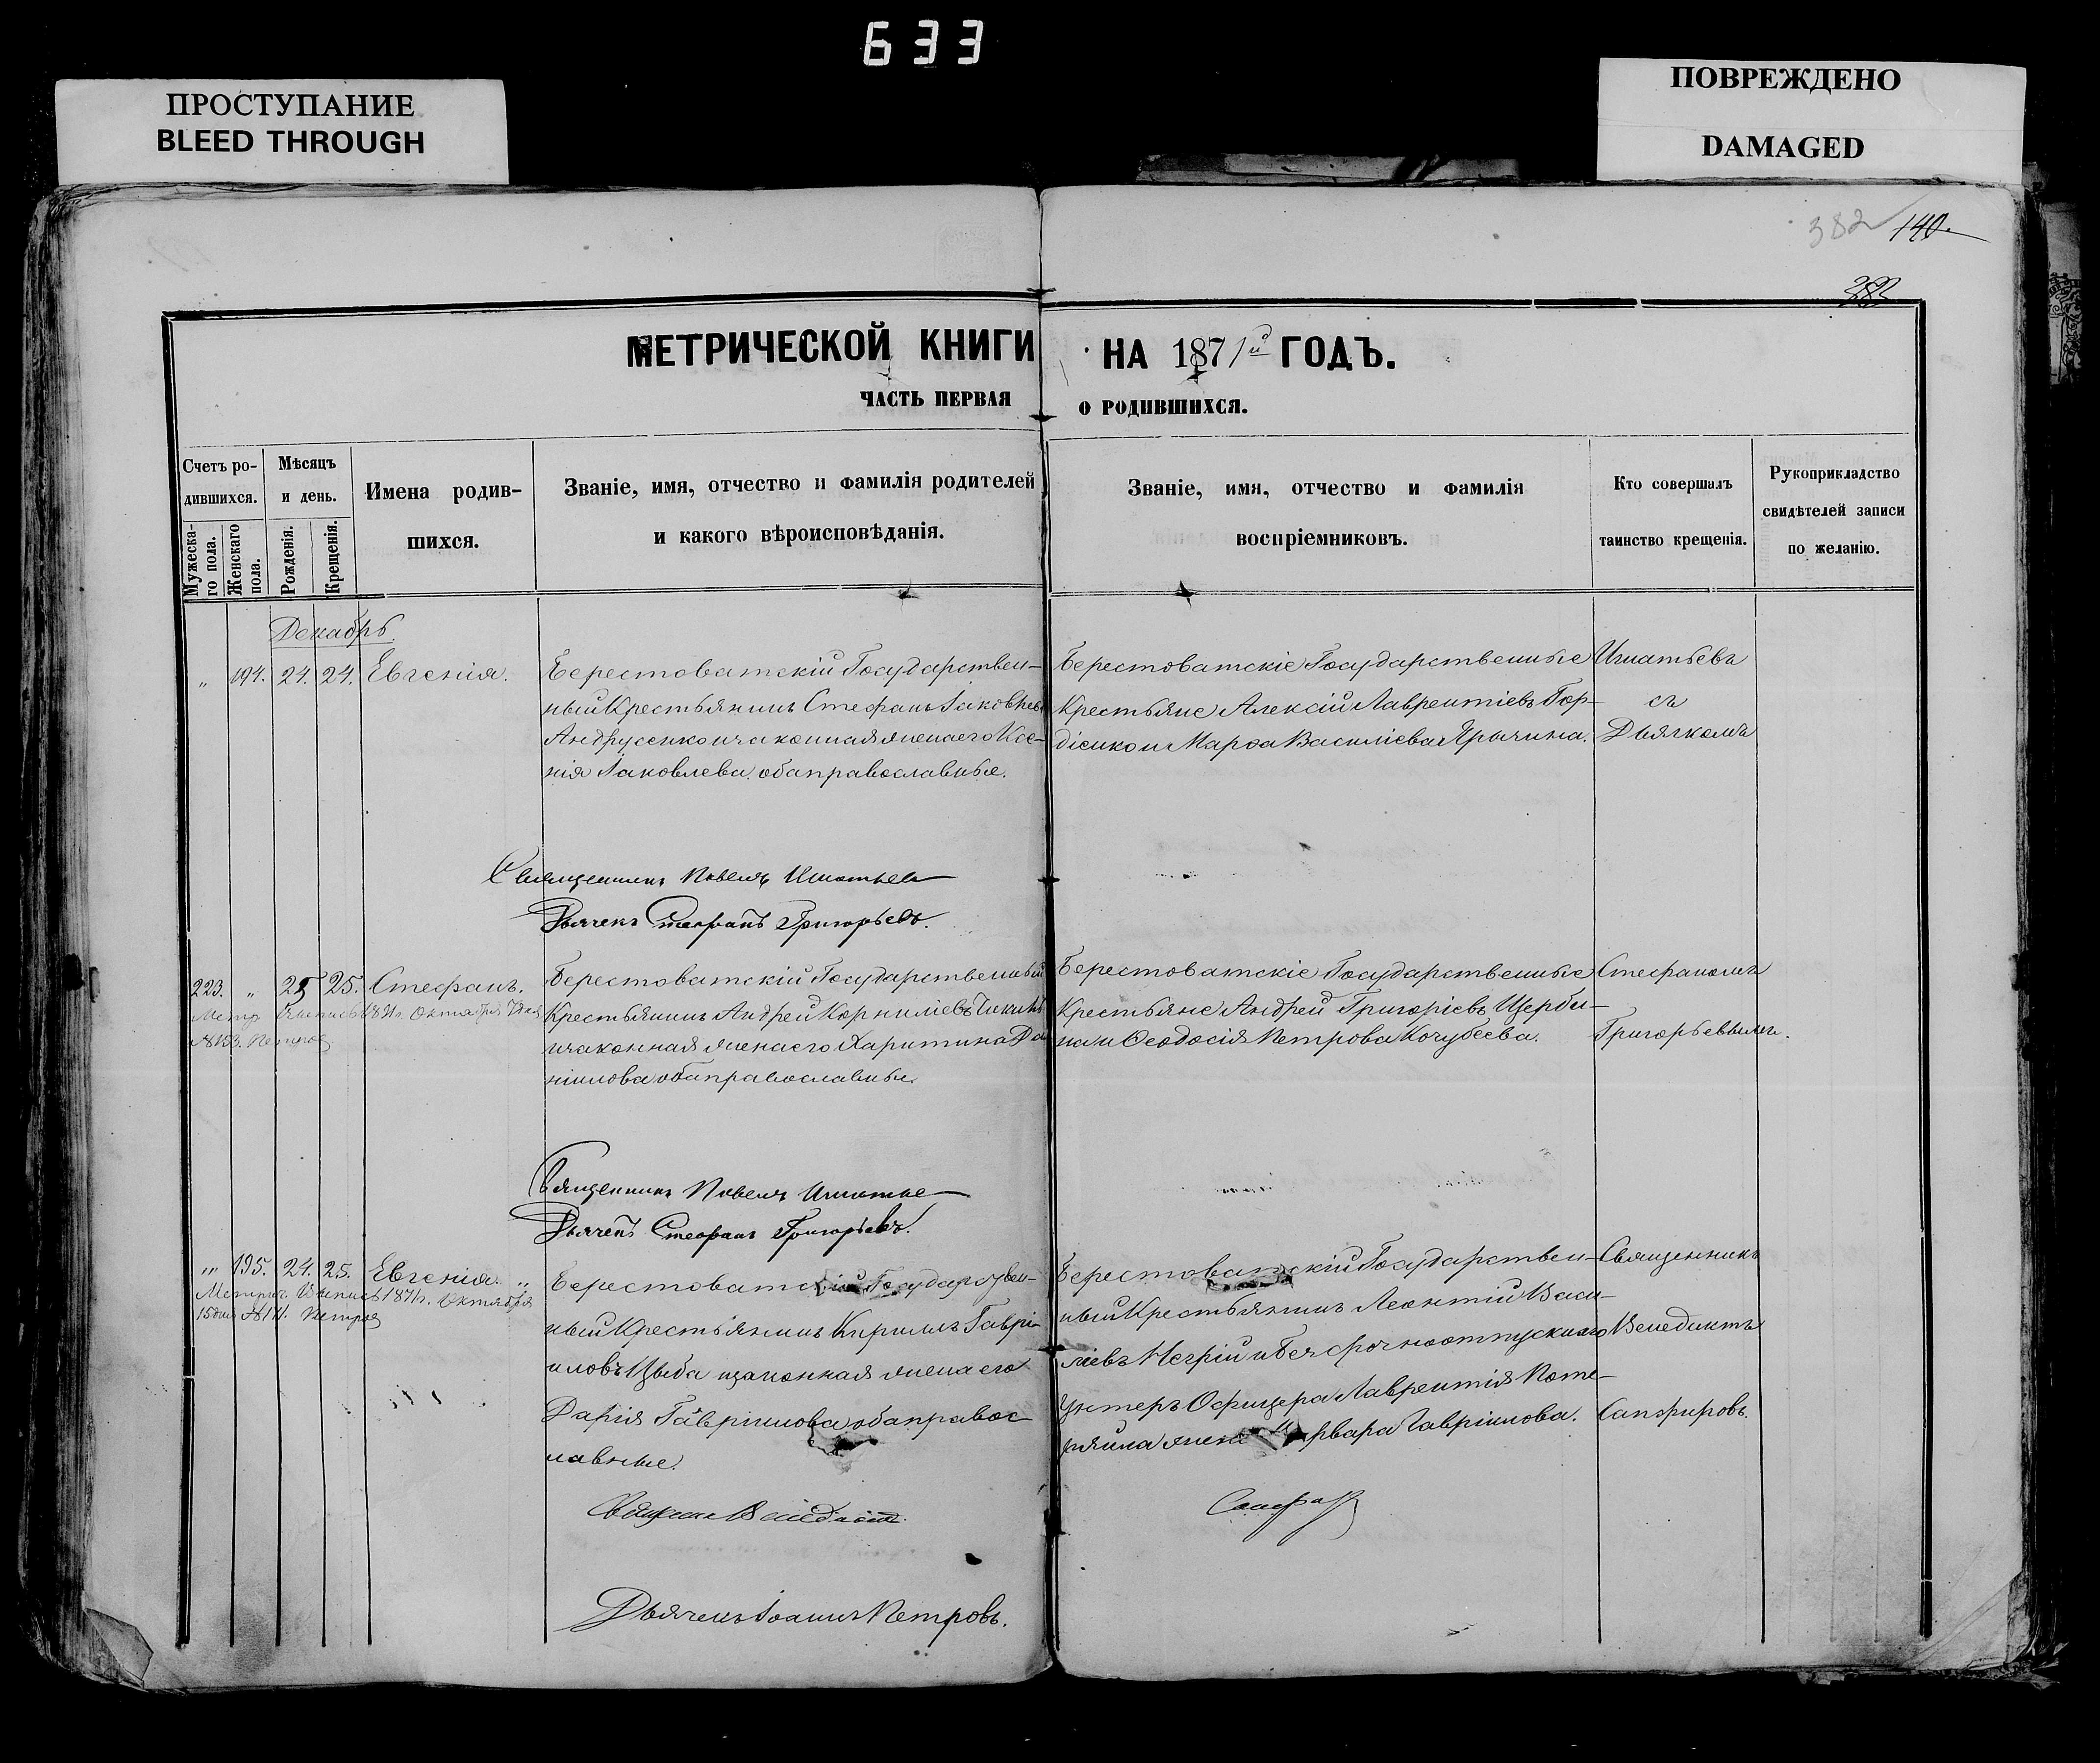 633
ПРОСТУПАНИЕ
BLEED THROUGH
ПОВРЕЖДЕНО
DAMAGED
382 140.
382
МЕТРИЧЕСКОЙ КНИГИ НА 1871й ГОДЪ.
ЧАСТЬ ПЕРВАЯ О РОДИВШИХСЯ.
Счетъ ро-
дившихся.
Мужеска-
го пола.
Женскаго
пола.
Мѣсяцъ
и день.
Рожденія.
Крещенія.
Имена родив-
шихся.
Званіе, имя, отчество и фамилія родителей
и какого вѣроисповѣданія.
Званіе, имя, отчество и фамилія
воспріемниковъ.
Кто совершалъ
таинство крещенія.
Рукоприкладство
свидѣтелей записи
по желанію.
Декабрь.
„ 194. 24. 24. Евгенія.
Берестоватскій Государствен-
ный Крестьянинъ Стефанъ Іаковлевъ
Андрусенко и законная жена его Ксе-
нія Іаковлева, оба православные.
Берестоватскіе Государственные
Крестьяне Алексій Лаврентіевъ Гор-
діенко и Марѳа Василіева Ярычина.
Игнатьевъ
съ
Дьячкомъ
Священникъ Павелъ Игнатьев
Дьячекъ Стефанъ Григорьевъ.
223. „ 25 25. Стефанъ.
Метр. Выпись 1871г. Октября 7 дня
№153. Петров
Берестоватскій Государственный
Крестьянинъ Андрей Корниліевъ
и законная жена его Харитина Да
ніилова оба православные.
Берестоватскіе Государственные
Крестьяне Андрей Григоріевъ Щерби-
на и Ѳеодосія Петрова Кочубеева.
Стефаномъ
Григорьевымъ.
Священникъ Павелъ Игнатье
Дьячекъ Стефанъ Григорьевъ.
„ 195. 24. 25. Евгенія. „
Метрич. Выпись 1871г. Октября
15 дня №171. Петров
Берестоватскій Государствен-
ный Крестьянинъ Кириллъ Гаврі-
иловъ Цыба и законная жена его
Дарія Гавріилова оба правос
лавные.
Берестоватскій Государствен-
ный Крестьянинъ Леонтій Васи-
ліевъ Негрій и Безсрочноотпускнаго
Унтеръ Офицера Лаврентія Поте-
ряйла жена Варвара Гавріилова.
Священникъ
Венедиктъ
Сапфировъ.
Священник Венедикт Сапфир
Дьячекъ Іоаннъ Петровъ.